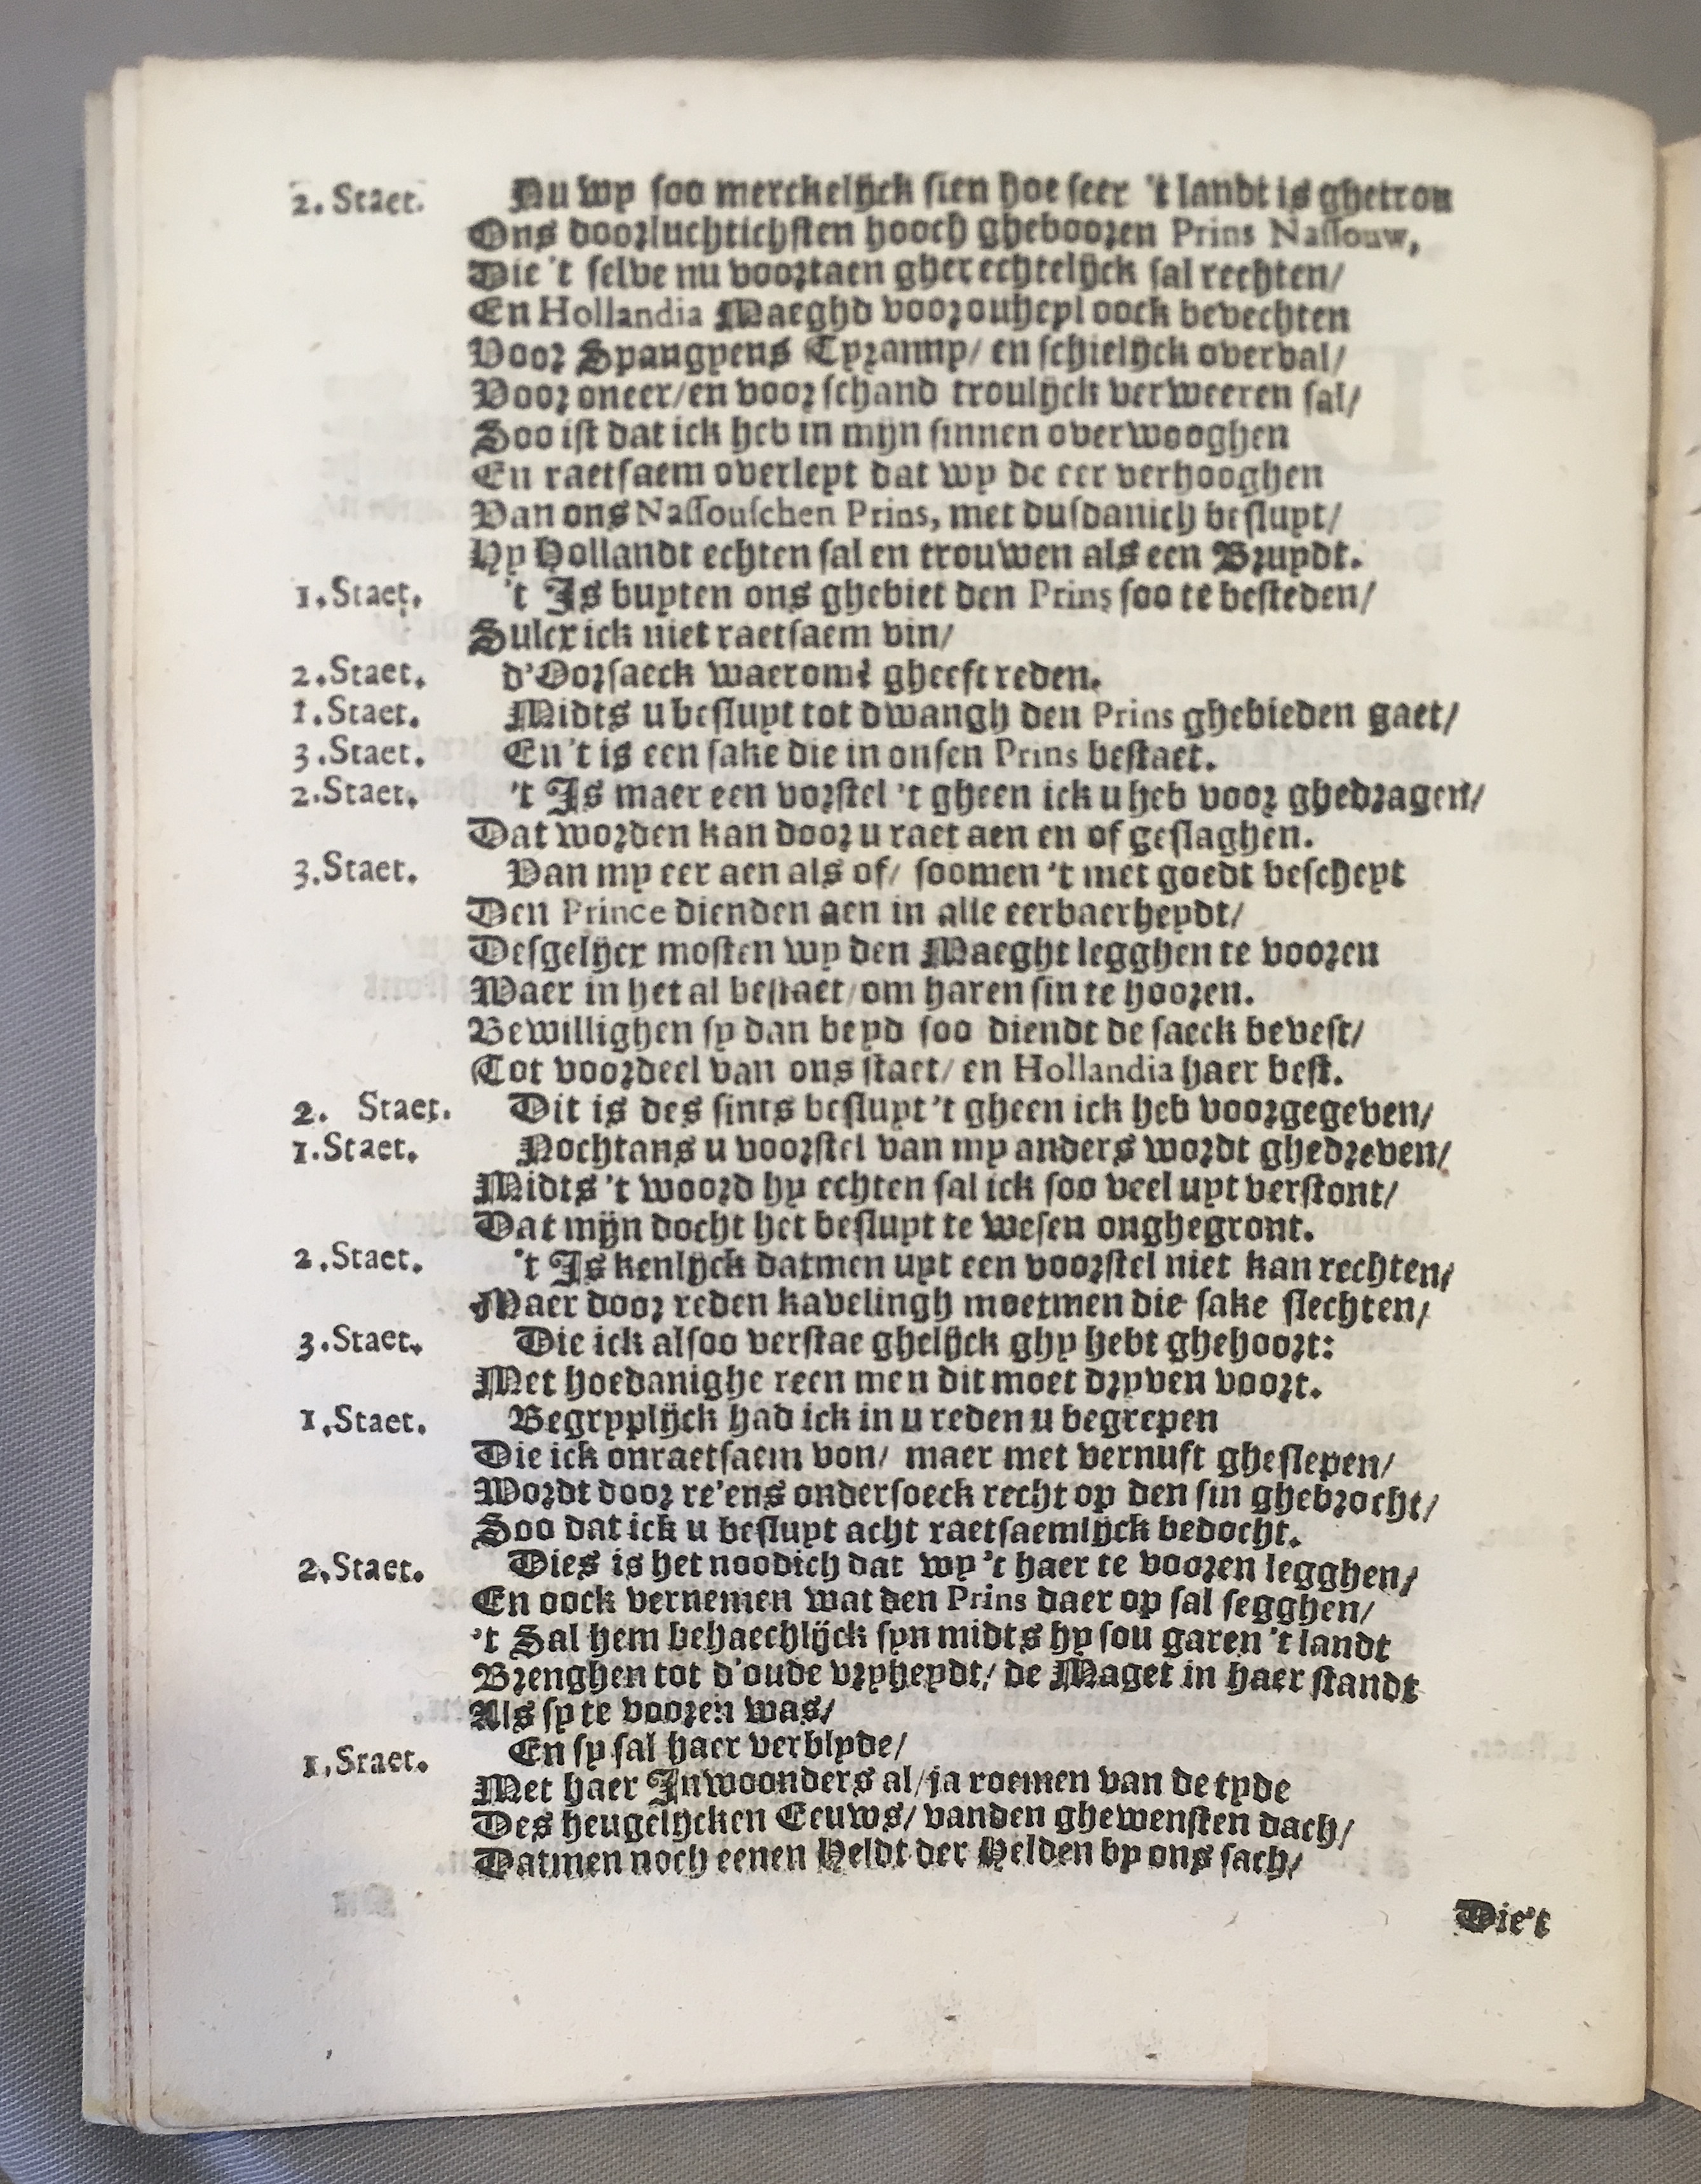 2. Staet. Nu wy soo merckelijck sien hoe seer 't landt is ghetrou
Ons doorluchtichsten hooch ghebooren Prins Nassouw,
Die 't selve nu voortaen gherechtelijck sal rechten/
En Hollandia Maeghd voor ouheyl oock bevechten
Voor Spangyens Tyranny/ en schielijck overval/
Voor oneer/en voor schand troulijck verweeren sal/
Soo ist dat ick heb in mijn sinnen overwooghen
En raetsaem overleyt dat wy de eer verhooghen
Van ons Nassouschen Prins, met dusdanich besluyt/
Hy Hollandt echten sal en trouwen als een Bruydt.
1. Staet. 't Is buyten ons ghebiet den Prins soo te besteden/
Sulcx ick niet raetsaem vin/
2. Staet. d'Oorsaeck waerom? gheeft reden.
1. Staet. Midts u besluyt tot dwangh den Prins ghebieden gaet/
3. Staet. En 't is een sake die in onsen Prins bestaet.
2. Staet. 't Is maer een vorstel 't gheen ick u heb voor ghedragen/
Dat worden kan door u raet aen en of geslaghen.
3. Staet. Van my eer aen als of/ soomen 't met goedt bescheyt
Den Prince dienden aen in alle eerbaerheydt/
Desgelijcx mosten wy den Maeght legghen te vooren
Waer in het al bestaet/om haren sin te hooren.
Bewillighen sy dan beyd soo diendt de saeck bevest/
Tot voordeel van ons staet/ en Hollandia haer best.
2. Staet. Dit is des sints besluyt 't gheen ick heb voorgegeven/
1. Staet. Nochtans u voorstel van my anders wordt ghedreven/
Midts 't woord hy echten sal ick soo veel uyt verstont/
Dat mijn docht het besluyt te wesen onghegront.
2. Staet. 't Is kenlijck datmen uyt een voorstel niet kan rechten/
Maer door reden kavelingh moetmen die sake slechten/
3. Staet. Die ick alsoo verstae ghelijck ghy hebt ghehoort:
Met hoedanighe reen men dit moet dryven voort.
1. Staet. Begrypplijck had ick in u reden u begrepen
Die ick onraetsaem von/ maer met vernuft gheslepen/
Wordt door re'ens ondersoeck recht op den sin ghebrocht/
Soo dat ick u besluyt acht raetsaemlijck bedocht.
2. Staet. Dies is het noodich dat wy 't haer te vooren legghen/
En oock vernemen wat den Prins daer op sal segghen/
't Sal hem behaechlijck syn midts hy sou garen 't landt
Brenghen tot d'oude vryheydt/ de Maget in haer standt
Als sy te vooren was/
1. Staet. En sy sal haer verblyde/
Met haer Inwoonders al/ja roemen van de tyde
Des heugelijcken Eeuws/ vanden ghewensten dach/
Datmen noch eenen Heldt der Helden by ons sach/
Die't